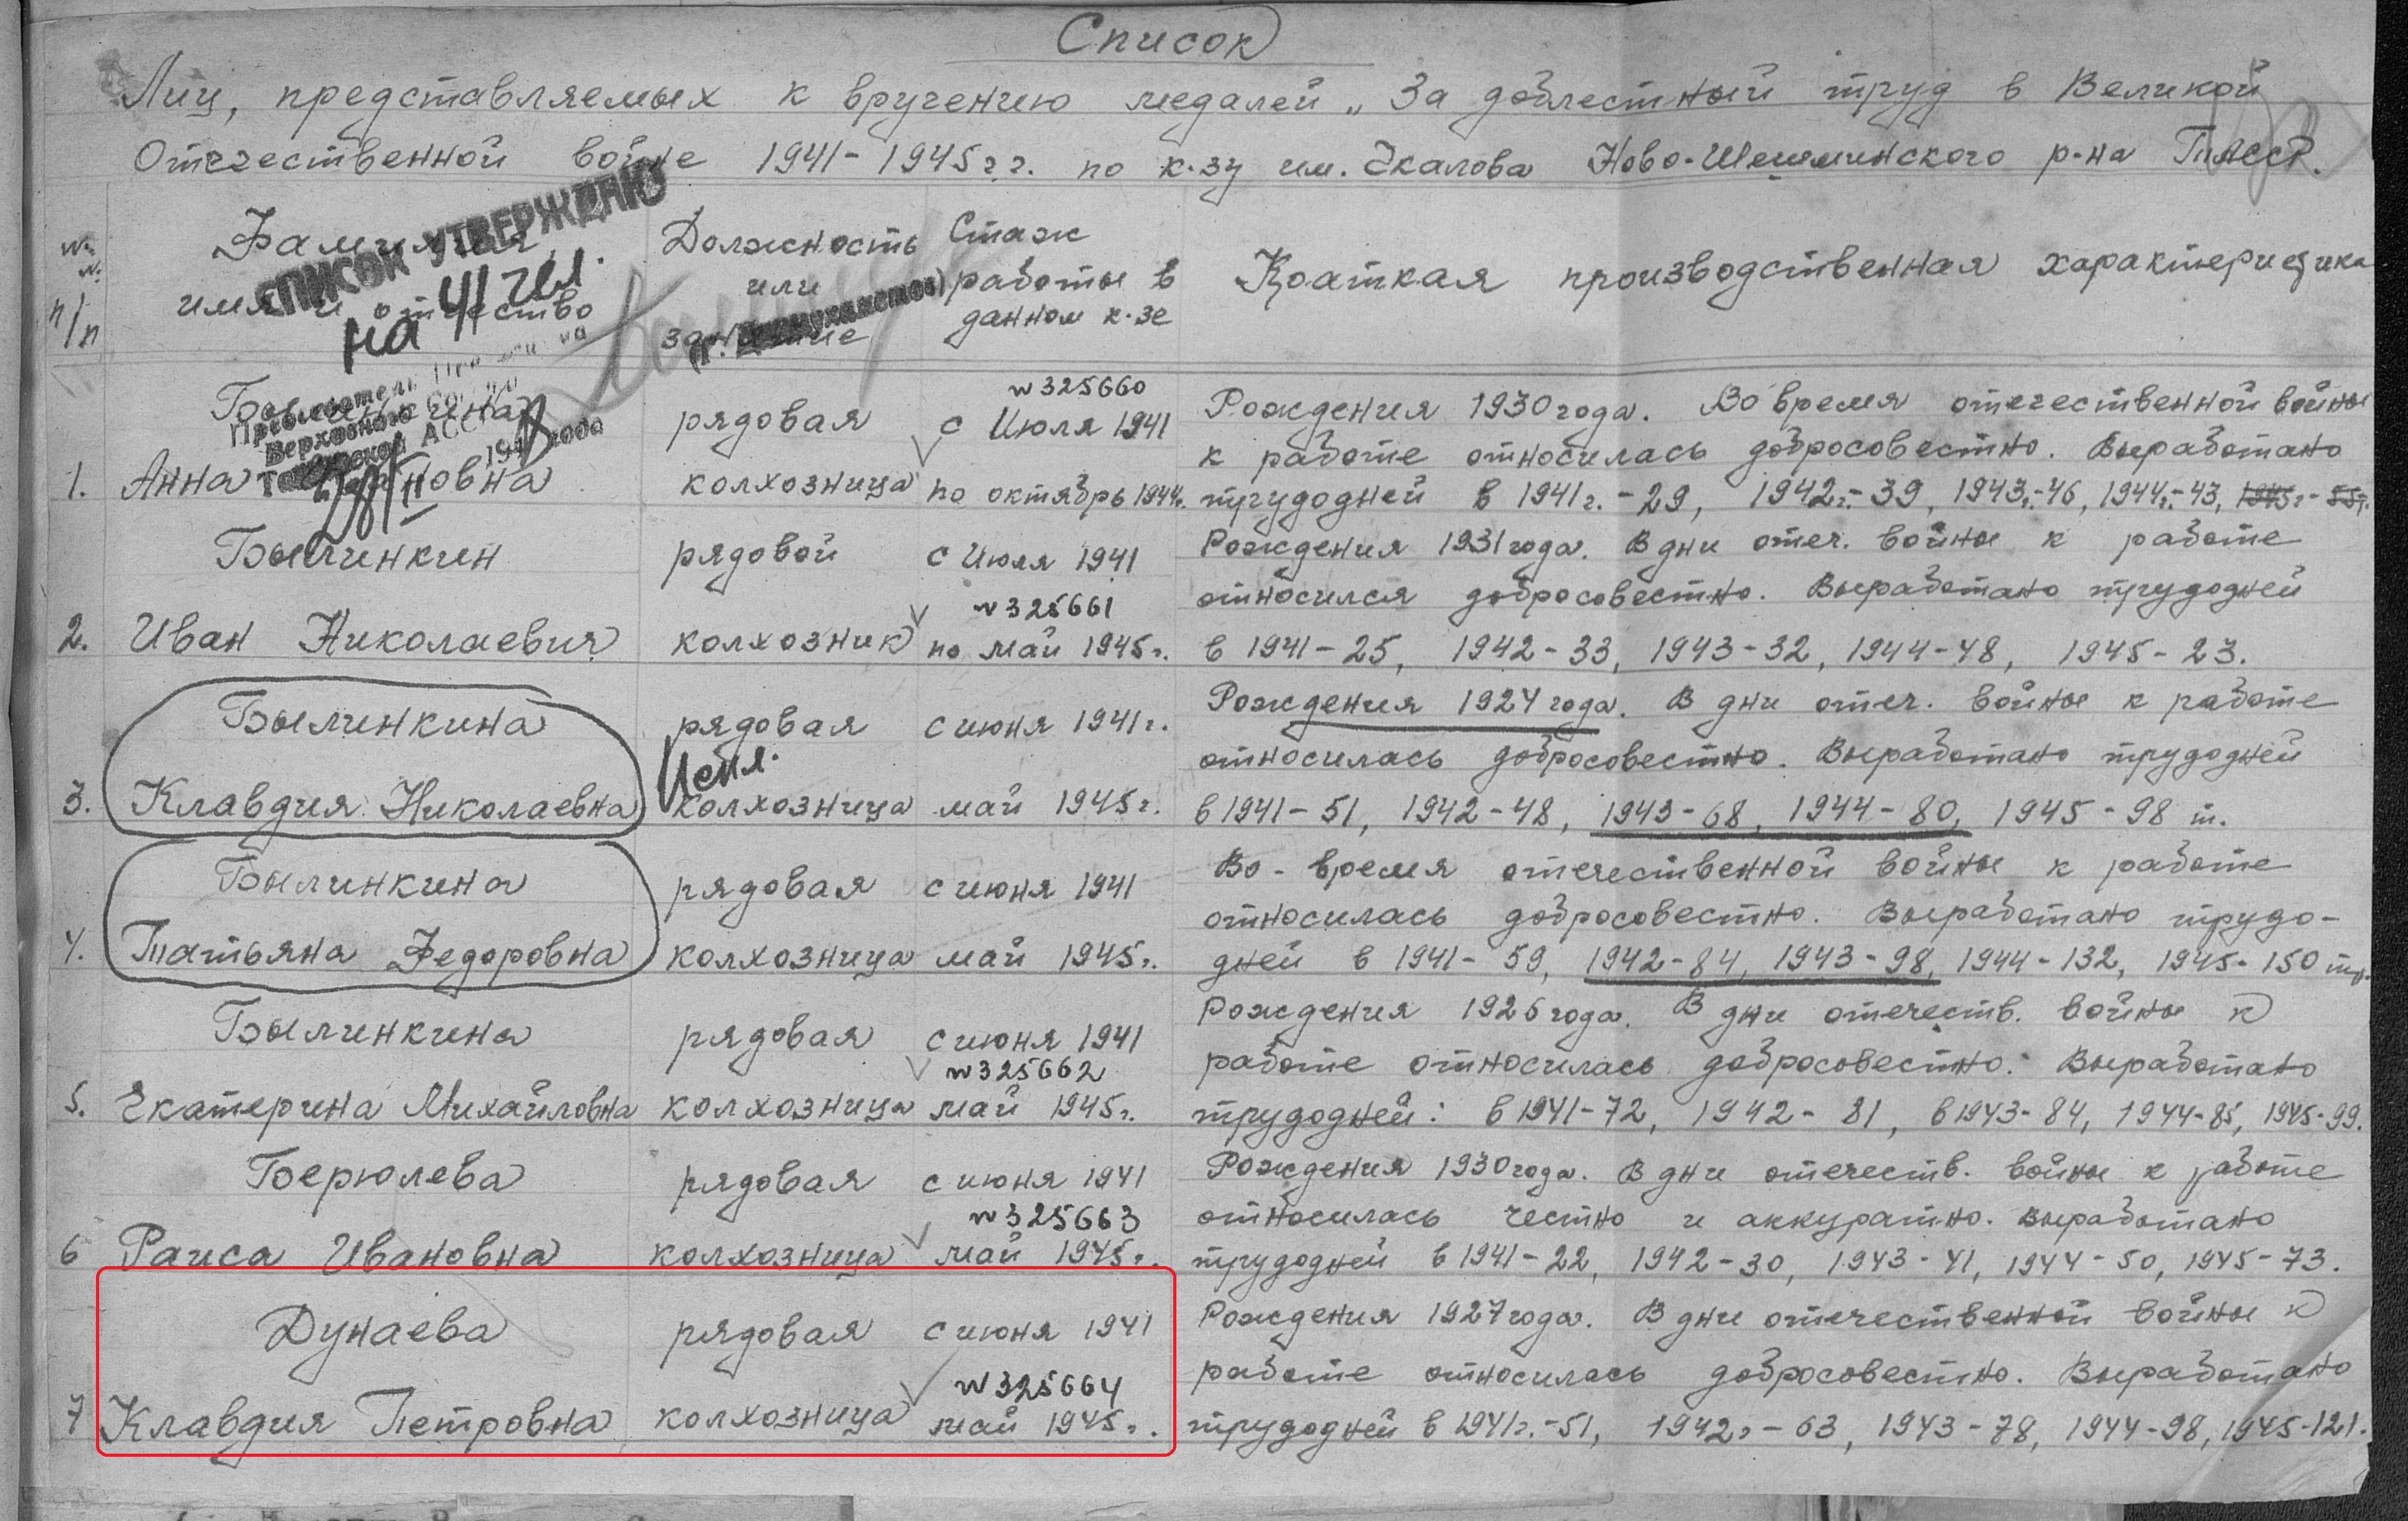 Список
Лиц, представляемых к вручению медалей „За доблестный труд в Великой
Отечественной войне 1941-1945г.г. по к-зу им. Чкалова Ново-Шешминского р-на ТАССР.
№ № п/п
Фамилия, имя и отчество
Должность или занятие
Стаж работы в данном к-зе
Краткая производственная характеристика
СПИСОК УТВЕРЖДАЮ
на 41 чел.
Председатель Президиума
Верховного Совета
Татарской АССР
194 года
1.
Анна
рядовая колхозница
№325660
с Июля 1941
по октябрь 1944г.
Рождения 1930 года. Во время отечественной войны
к работе относилась добросовестно. Выработано
трудодней в 1941г.-29, 1942г.-39, 1943г.-46, 1944г.-43, 1945г-
2.
Былинкин
Иван Николаевич
рядовой
колхозник
с Июля 1941
№325661
по май 1945г.
Рождения 1931 года. В дни отеч. войны к работе
относился добросовестно. Выработано трудодней
в 1941-25, 1942-33, 1943-32, 1944-48, 1945-23.
3.
Былинкина
Клавдия Николаевна
рядовая
Искл.
колхозница
с июня 1941г.
май 1945г.
Рождения 1924 года. В дни отеч. войны к работе
относилась добросовестно. Выработано трудодней
в 1941-51, 1942-48, 1943-68, 1944-80, 1945-98 т.
4.
Былинкина
Татьяна Федоровна
рядовая
колхозница
с июня 1941
май 1945г.
Во-время отечественной войны к работе
относилась добросовестно. Выработано трудо-
дней в 1941-59, 1942-84, 1943-98, 1944-132, 1945-150 тр.
5.
Былинкина
Екатерина Михайловна
рядовая
колхозница
с июня 1941
№325662
май 1945г.
Рождения 1926 года. В дни отечеств. войны к
работе относилась добросовестно. Выработано
трудодней: в 1941-72, 1942-81, в 1943-84, 1944-85, 1945-99.
6
Берюлева
Раиса Ивановна
рядовая
колхозница
с июня 1941
№325663
май 1945г.
Рождения 1930 года. В дни отечеств. войны к работе
относилась честно и аккуратно. Выработано
трудодней в 1941-22, 1942-30, 1943-41, 1944-50, 1945-73.
7
Дунаева
Клавдия Петровна
рядовая
колхозница
с июня 1941
№325664
май 1945г.
Рождения 1927 года. В дни отечественной войны к
работе относилась добросовестно. Выработано
трудодней в 1941г.-51, 1942г-63, 1943-78, 1944-98, 1945-121.